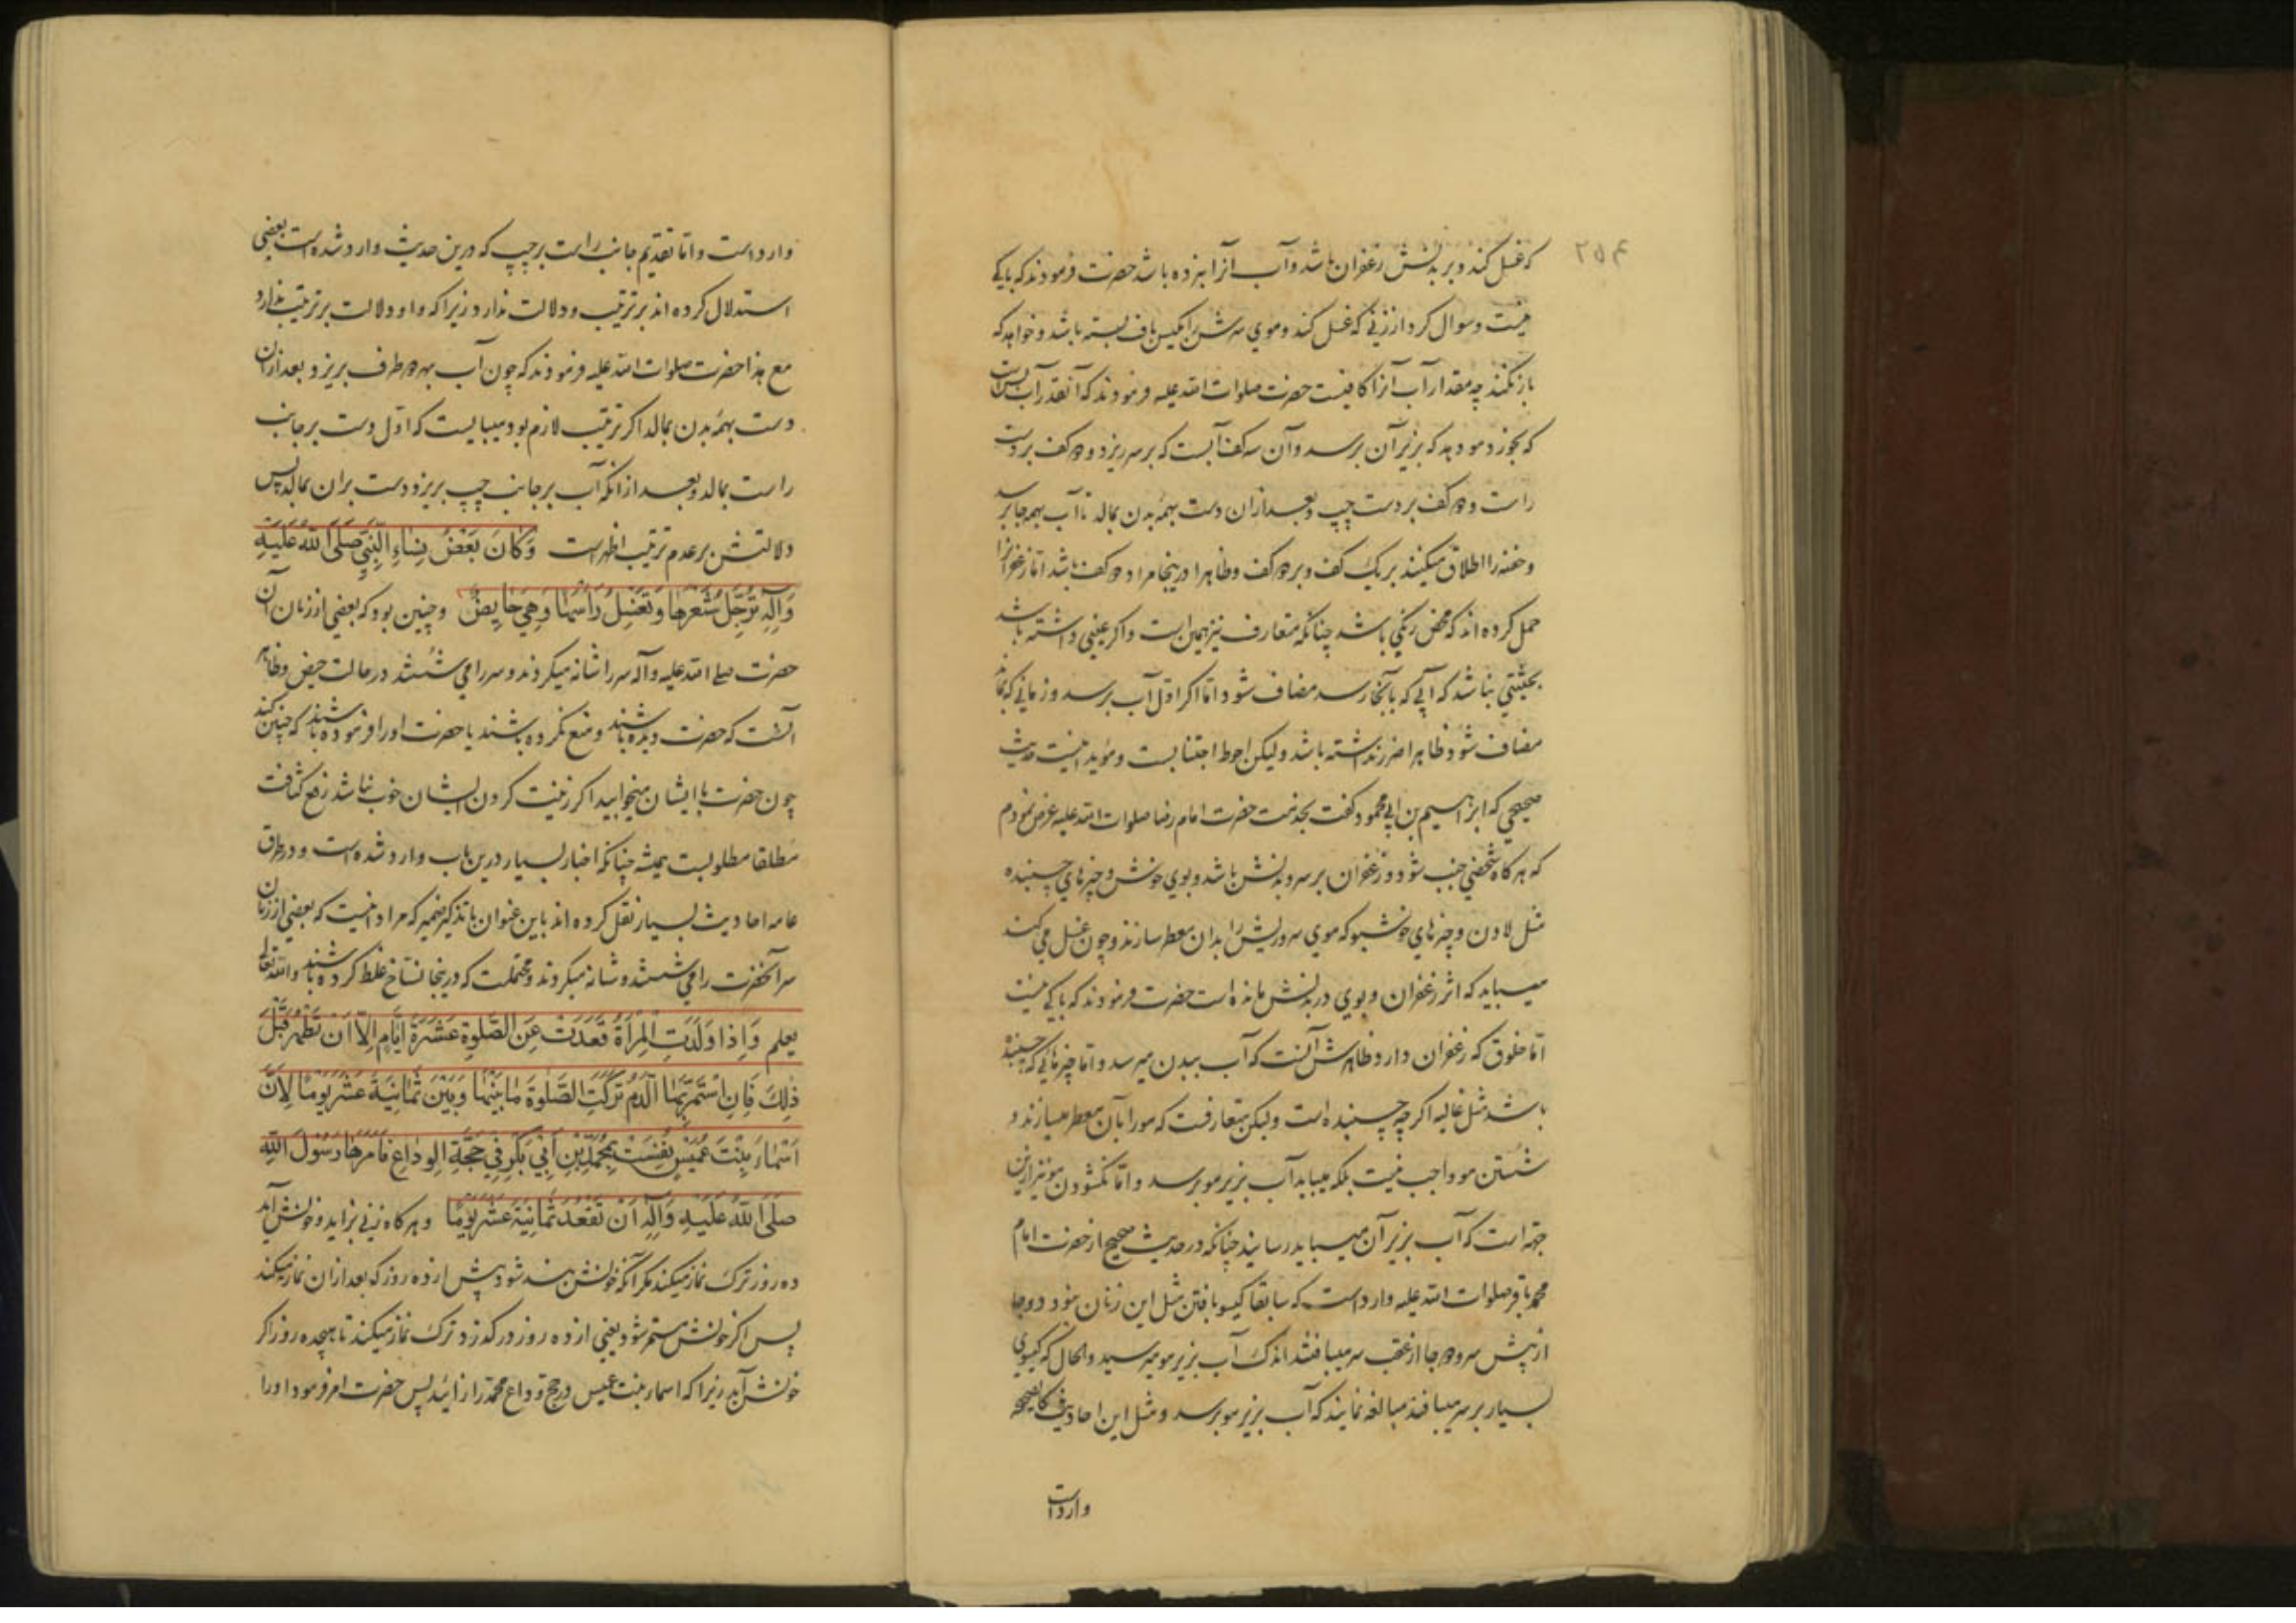 ۲۵۴
که غسل کند و بر بدنش زعفران باشد و آب آنرا نبرده باشد حضرت فرمودند که باکی
نیست و سوال کرد از زنی که غسل کند و موی سرش را بافته باشد و خواهد که
باز نکند چه مقدار آب آنرا کافیست حضرت صلوات الله علیه فرمودند که آنقدر آب بس است
که بخورد مو دهد که بزیر آن برسد و آن سه کف آبست که بر سر ریزد و دو کف بر دست
راست و دو کف بر دست چپ و بعد از ان دست بهمهٔ بدن بمالد تا آب بهمه جا برسد
و حفنه را اطلاق میکنند بر یک کف و بر دو کف و ظاهرا درینجا مراد دو کف باشد اما زعفران را
حمل کرده اند که محض رنگی باشد چنانکه متعارف نیز همین است و اگر عینی داشته باشد
بحیثیتی نباشد که آبی که بآنجا رسد مضاف شود اما اگر اول آب برسد و زمانی که بماند
مضاف شود ظاهرا ضرر نداشته باشد و لیکن احوط اجتنابست و مؤید اینست حدیث
صحیحی که ابراهیم بن ابی محمود گفت بخدمت حضرت امام رضا صلوات الله علیه عرض نمودم
که هر کاه شخصی جنب شود و زعفران بر سر و بدنش باشد و بوی خوش و چیزهای چسبنده
مثل لادن و چیزهای خوشبو که موی سر و ریش را بدان معطر سازند و چون غسل می کند
میباید که اثر زعفران و بوی در بدنش مانده است حضرت فرمودند که باکی نیست
اما خلوق که زعفران دارد ظاهرش آنست که آب ببدن میرسد و اما چیزهایی که چسبنده
باشد مثل غالیه اگر چه چسبنده است و لیکن متعارفست که مو را بآن معطر میسازند و
شستن مو واجب نیست بلکه میباید آب بزیر مو برسد و اما نگشودن مو نیز ازین
جهة است که آب بزیر آن میباید رسانید چنانکه در حدیث صحیح از حضرت امام
محمد باقر صلوات الله علیه وارد است که سابقا گیسو بافتن مثل این زنان نبود دو جا
از پیش سر و دو جا از عقب سر میبافتند اندک آب بزیر مو میرسید و الحال که گیسوی
بسیار بر سر میبافند مبالغه نمایند که آب بزیر مو برسد و مثل این احادیث کالصحیحه
وارد است
وارد است و اما تقدیم جانب راست بر چپ که درین حدیث وارد شده است بعضی
استدلال کرده اند بر ترتیب و دلالت ندارد زیرا که واو دلالت بر ترتیب ندارد
مع هذا حضرت صلوات الله علیه فرمودند که چون آب بهر دو طرف بریزد بعد ازان
دست بهمهٔ بدن بمالد اگر ترتیب لازم بود میبایست که اول دست بر جانب
راست بمالد و بعد از انکه آب بر جانب چپ بریزد دست بران بمالد پس
دلالتش بر عدم ترتیب اظهر است وَکَانَ بَعْضُ نِسَاءِ النَّبِيِّ صَلَّى اللهُ عَلَيْهِ
وَآلِهِ تُرَجِّلُ شَعْرَهَا وَتَغْسِلُ رَأْسَهَا وَهِيَ حَايِضٌ و چنین بود که بعضی از زنان آن
حضرت صلی الله علیه و آله سر را شانه میکردند و سر را می شستند در حالت حیض و ظاهر
آنست که حضرت دیده باشند و منع نکرده باشند یا حضرت او را فرموده باشند که چنین کند
چون حضرت با ایشان میخوابید اگر زینت کردن ایشان خوب نباشد رفع کثافت
مطلقا مطلوبست همیشه چنانکه اخبار بسیار درین باب وارد شده است و در طرق
عامه احادیث بسیار نقل کرده اند باین عنوان با تذکیر ضمیر که مراد اینست که بعضی از زنان
سر آنحضرت را می شستند و شانه میکردند و محتملست که درینجا نساخ غلط کرده باشند والله تعالی
یعلم وَاِذَا وَلَدَتِ الْمَرْأَةُ قَعَدَتْ عَنِ الصَّلٰوةِ عَشَرَةَ اَيَّامٍ اِلَّا اَنْ تَطْهُرَ قَبْلَ
ذٰلِكَ فَاِنِ اسْتَمَرَّ بِهَا الدَّمُ تَرَكَتِ الصَّلٰوةَ مَا بَيْنَهَا وَبَيْنَ ثَمَانِيَةَ عَشَرَ يَوْمًا لِاَنَّ
اَسْمَاءَ بِنْتَ عُمَيْسٍ نُفِسَتْ بِمُحَمَّدِ بْنِ اَبِي بَكْرٍ فِي حَجَّةِ الْوِدَاعِ فَاَمَرَهَا رَسُولُ اللهِ
صَلَّى اللهُ عَلَيْهِ وَآلِهِ اَنْ تَقْعُدَ ثَمَانِيَةَ عَشَرَ يَوْمًا و هر کاه زنی بزاید و خونش آید
ده روز ترک نماز میکند مگر آنکه خونش بند شود پیش از ده روز که بعد از ان نماز میکند
پس اگر خونش مستمر شود یعنی از ده روز در گذرد ترک نماز میکند تا هیجده روز اگر
خونش آید زیرا که اسماء بنت عمیس در حج وداع محمد را زائید پس حضرت امر فرمود او را